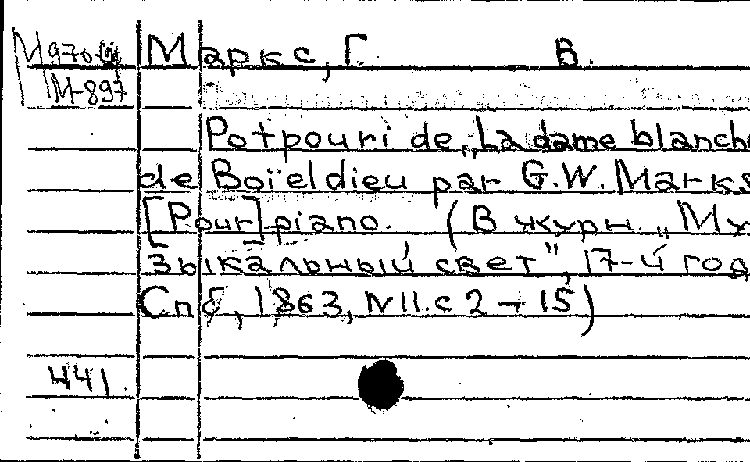 Маркс, Г. В.
М-897
Potpouri de „La dame blanche
de Boïeldieu par G.W. Marks
[Pour] piano. (В журн. „Му-
зыкальный свет", 17-й год
Спб, 1863, N11. с 2-15)
441.